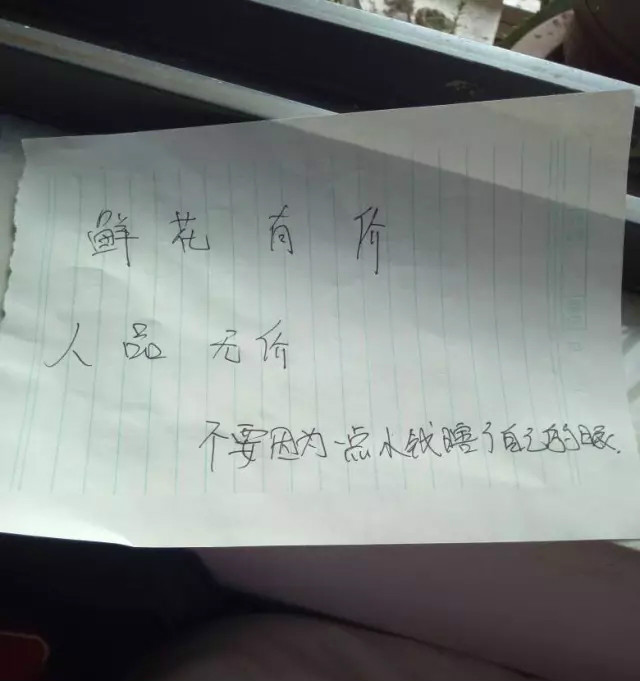 鲜花有价
人品无价
不要因为一点小钱瞎了自己的眼.